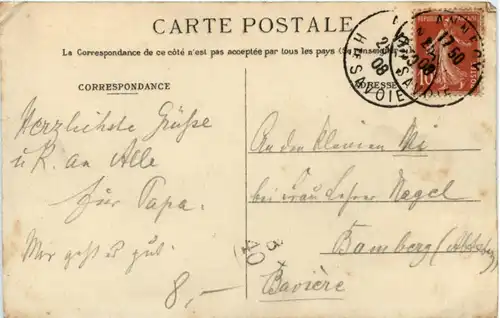 CARTE POSTALE
La Correspondance de ce côté n'est pas acceptée par tous les pays (Se renseigner
CORRESPONDANCE
ADRESSE
RÉPUBLIQUE FRANÇAISE
10
POSTES
ANNECY
17 50
08
HTE SAVOIE
Herzlichste Grüße
u. K. an Alle
für Papa.
Mir geht es gut.
8,—
An den kleinen
bei Frau Lehrer Nagel
Bamberg
Bavière
3
40